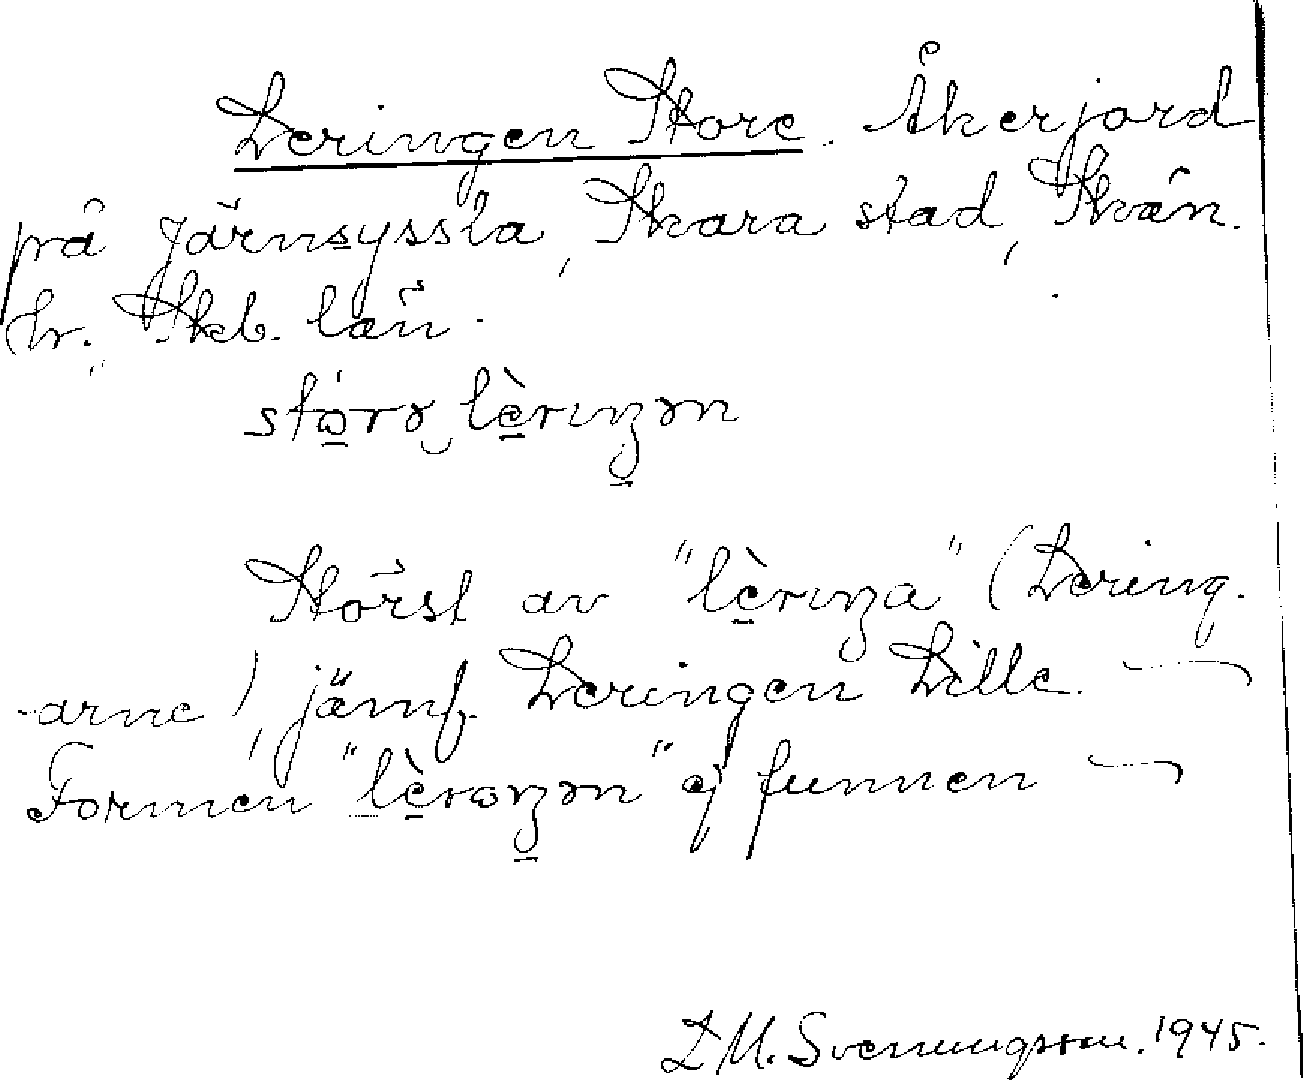 Leringen Store. Åkerjord
på Järnsyssla, Skara stad, Skån.
hr. Skb. län.
störe lèrıŋən
Störst av "lèrıŋa" (Lering-
arne), jämf. Leringen Lille. —
Formen "lèrəŋən" ej funnen —
D M. Svenungsson. 1945.